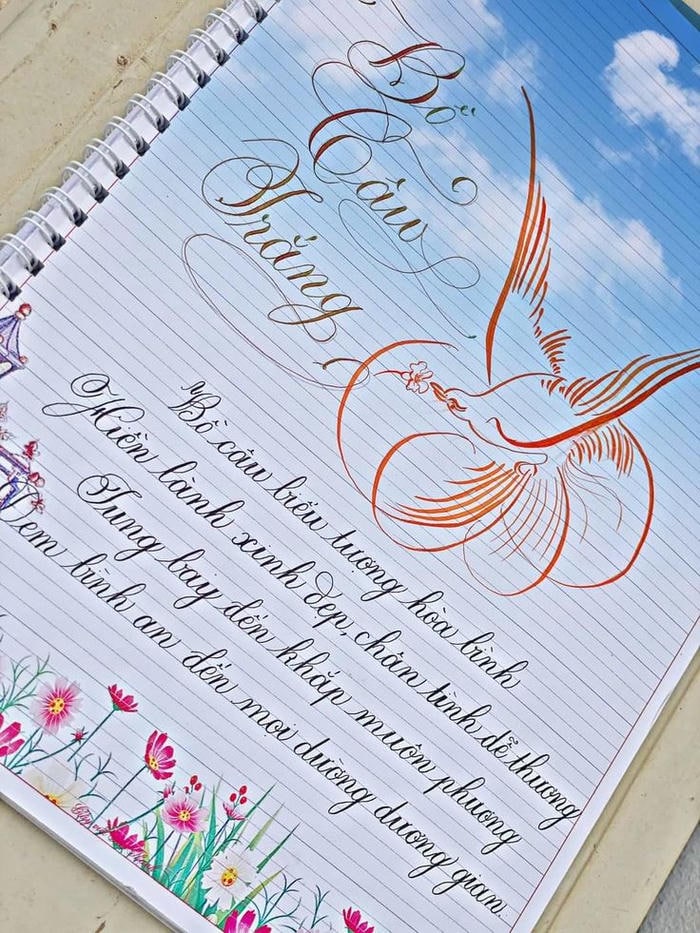 Bồ
Câu
Trắng
"Bồ câu biểu tượng hòa bình
Hiền lành xinh đẹp, chân tình dễ thương
Tung bay đến khắp muôn phương
Đem bình an đến mọi đường dương gian.